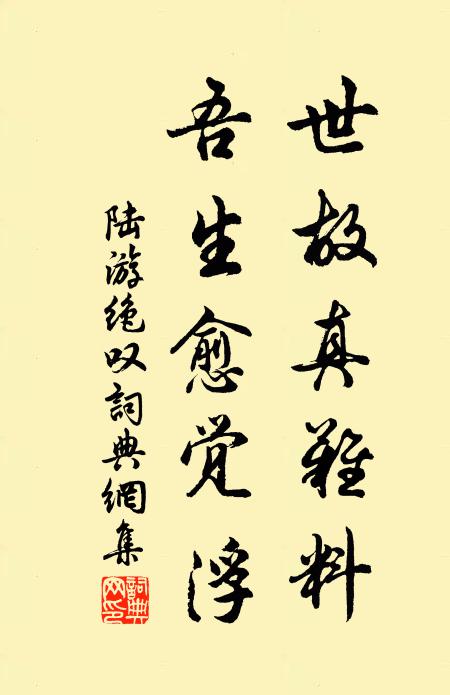 世故真難料
吾生愈觉浮
陆游绝叹詞典網集
詞典网印